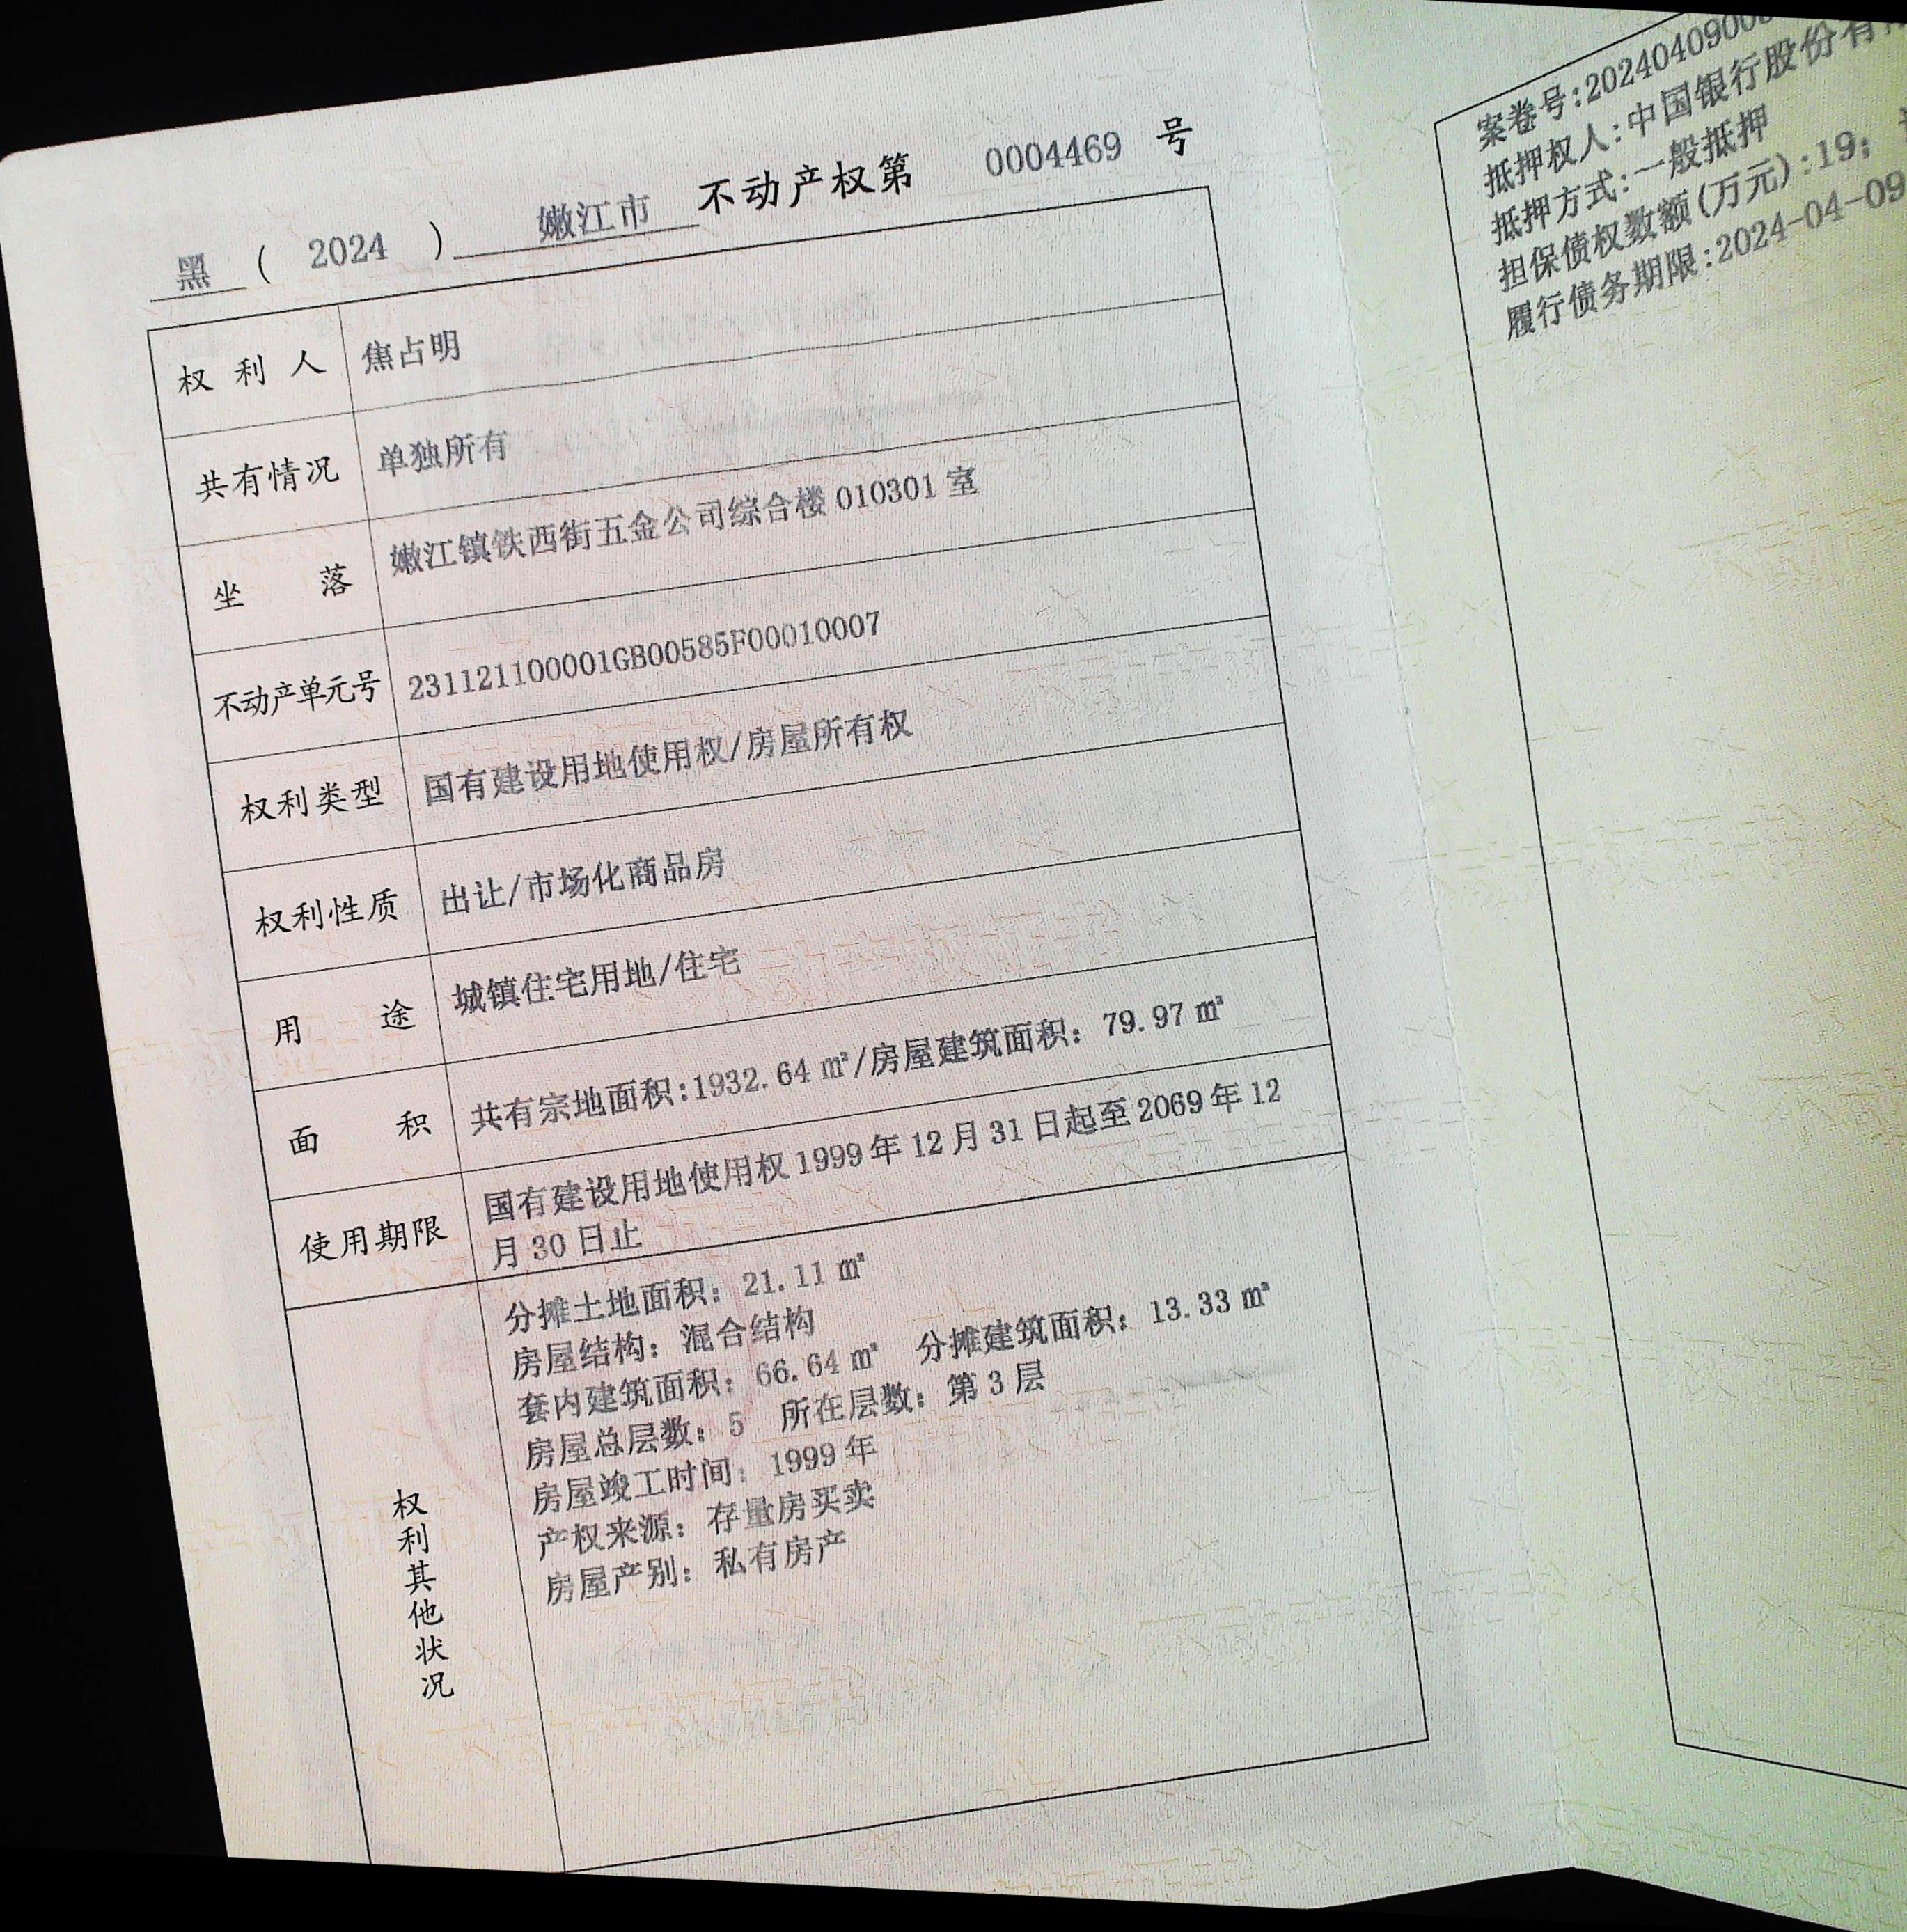 黑 ( 2024 ) 嫩江市 不动产权第 0004469 号
权利人 焦占明
共有情况 单独所有
坐落 嫩江镇铁西街五金公司综合楼010301室
不动产单元号 231121100001GB00585F00010007
权利类型 国有建设用地使用权/房屋所有权
权利性质 出让/市场化商品房
用途 城镇住宅用地/住宅
面积 共有宗地面积:1932.64㎡/房屋建筑面积：79.97㎡
使用期限 国有建设用地使用权1999年12月31日起至2069年12
月30日止
权利其他状况
分摊土地面积：21.11㎡
房屋结构：混合结构
套内建筑面积：66.64㎡ 分摊建筑面积：13.33㎡
房屋总层数：5 所在层数：第3层
房屋竣工时间：1999年
产权来源：存量房买卖
房屋产别：私有房产
案卷号:202404090
抵押权人:中国银行股份有
抵押方式:一般抵押
担保债权数额(万元):19;
履行债务期限:2024-04-09